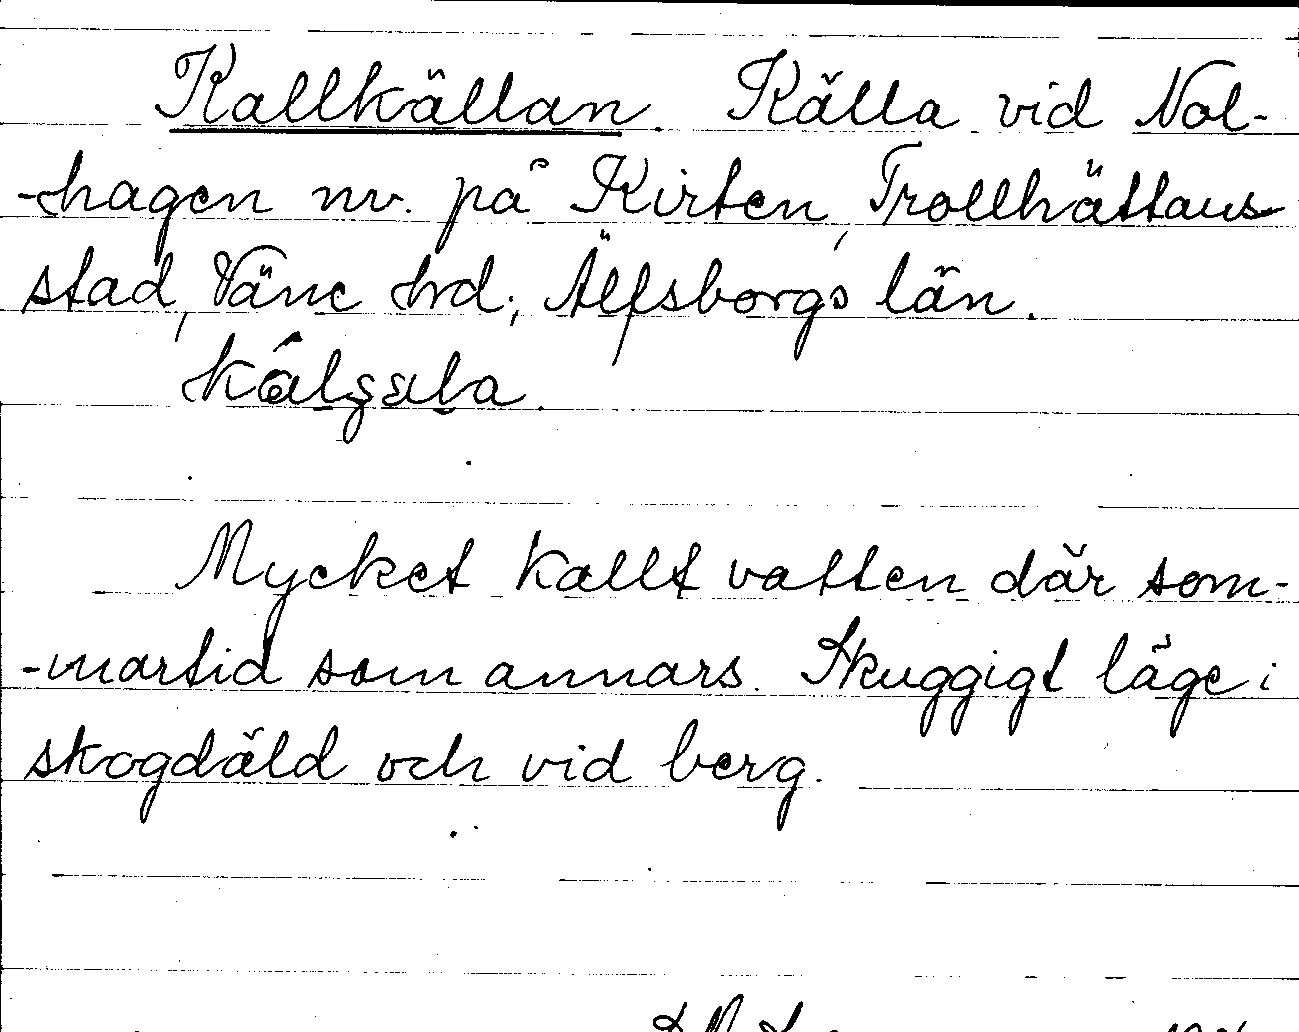 Kallkällan. Källa vid Nol-
-hagen nv. på Kirten, Trollhättans
stad, Väne hrd; Älfsborgs län.
Mycket kallt vatten där som-
-martid som annars. Skuggigt läge i
skogdäld och vid berg.